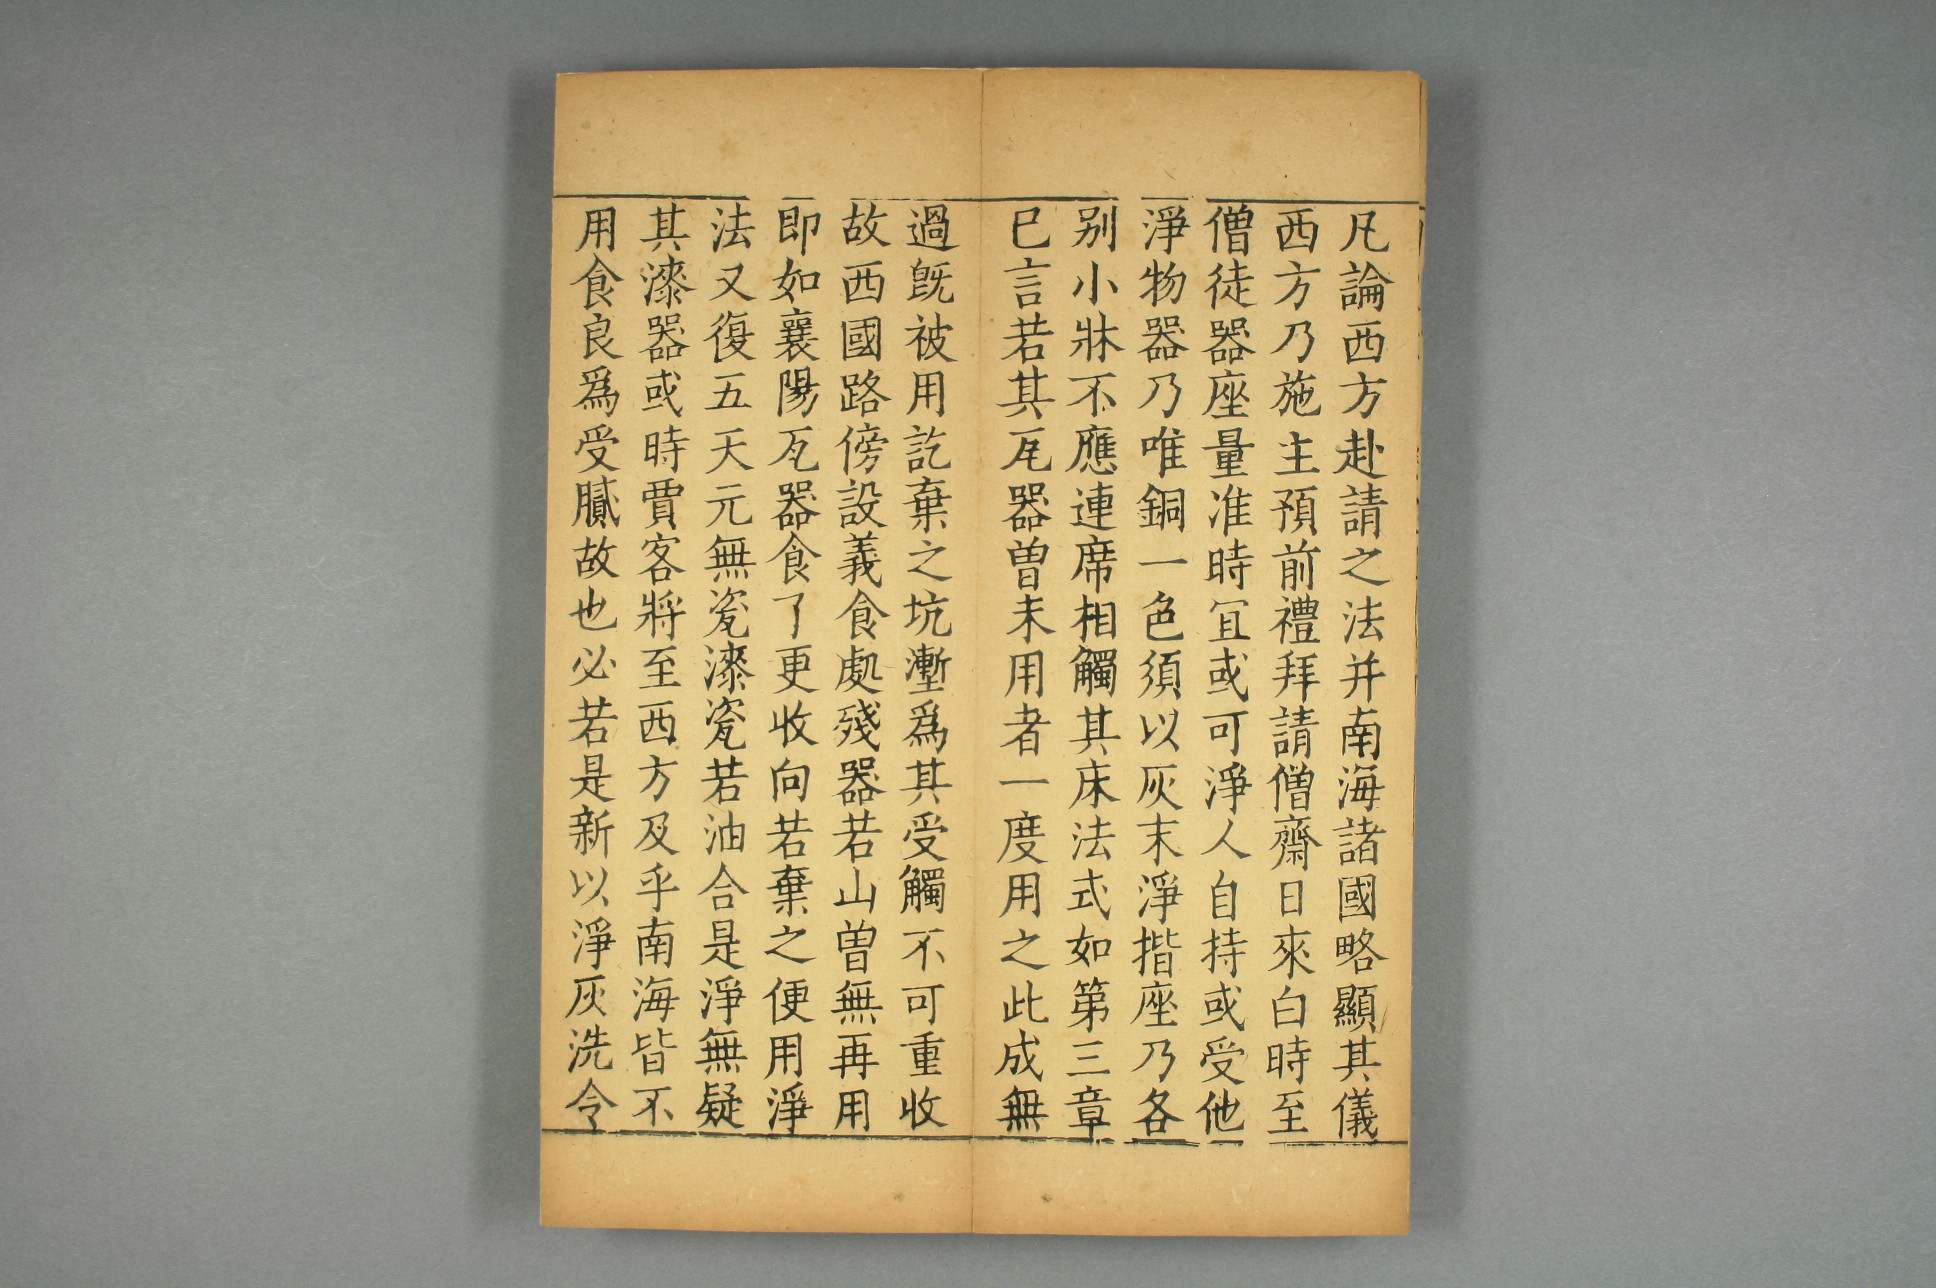 凡論西方赴請之法并南海諸國略顯其儀
西方乃施主預前禮拜請僧齋日來白時至
僧徒器座量准時冝或可淨人自持或受他
淨物器乃唯銅一色須以灰末淨揩座乃各
别小牀不應連席相觸其床法式如第三章
已言若其瓦器曽未用者一度用之此成無
過旣被用訖棄之坑壍爲其受觸不可重收
故西國路傍設義食處殘器若山曽無再用
即如襄陽瓦器食了更收向若棄之便用淨
法又復五天元無瓷漆瓷若油合是淨無疑
其漆器或時賈客將至西方及乎南海皆不
用食良爲受膩故也必若是新以淨灰洗令